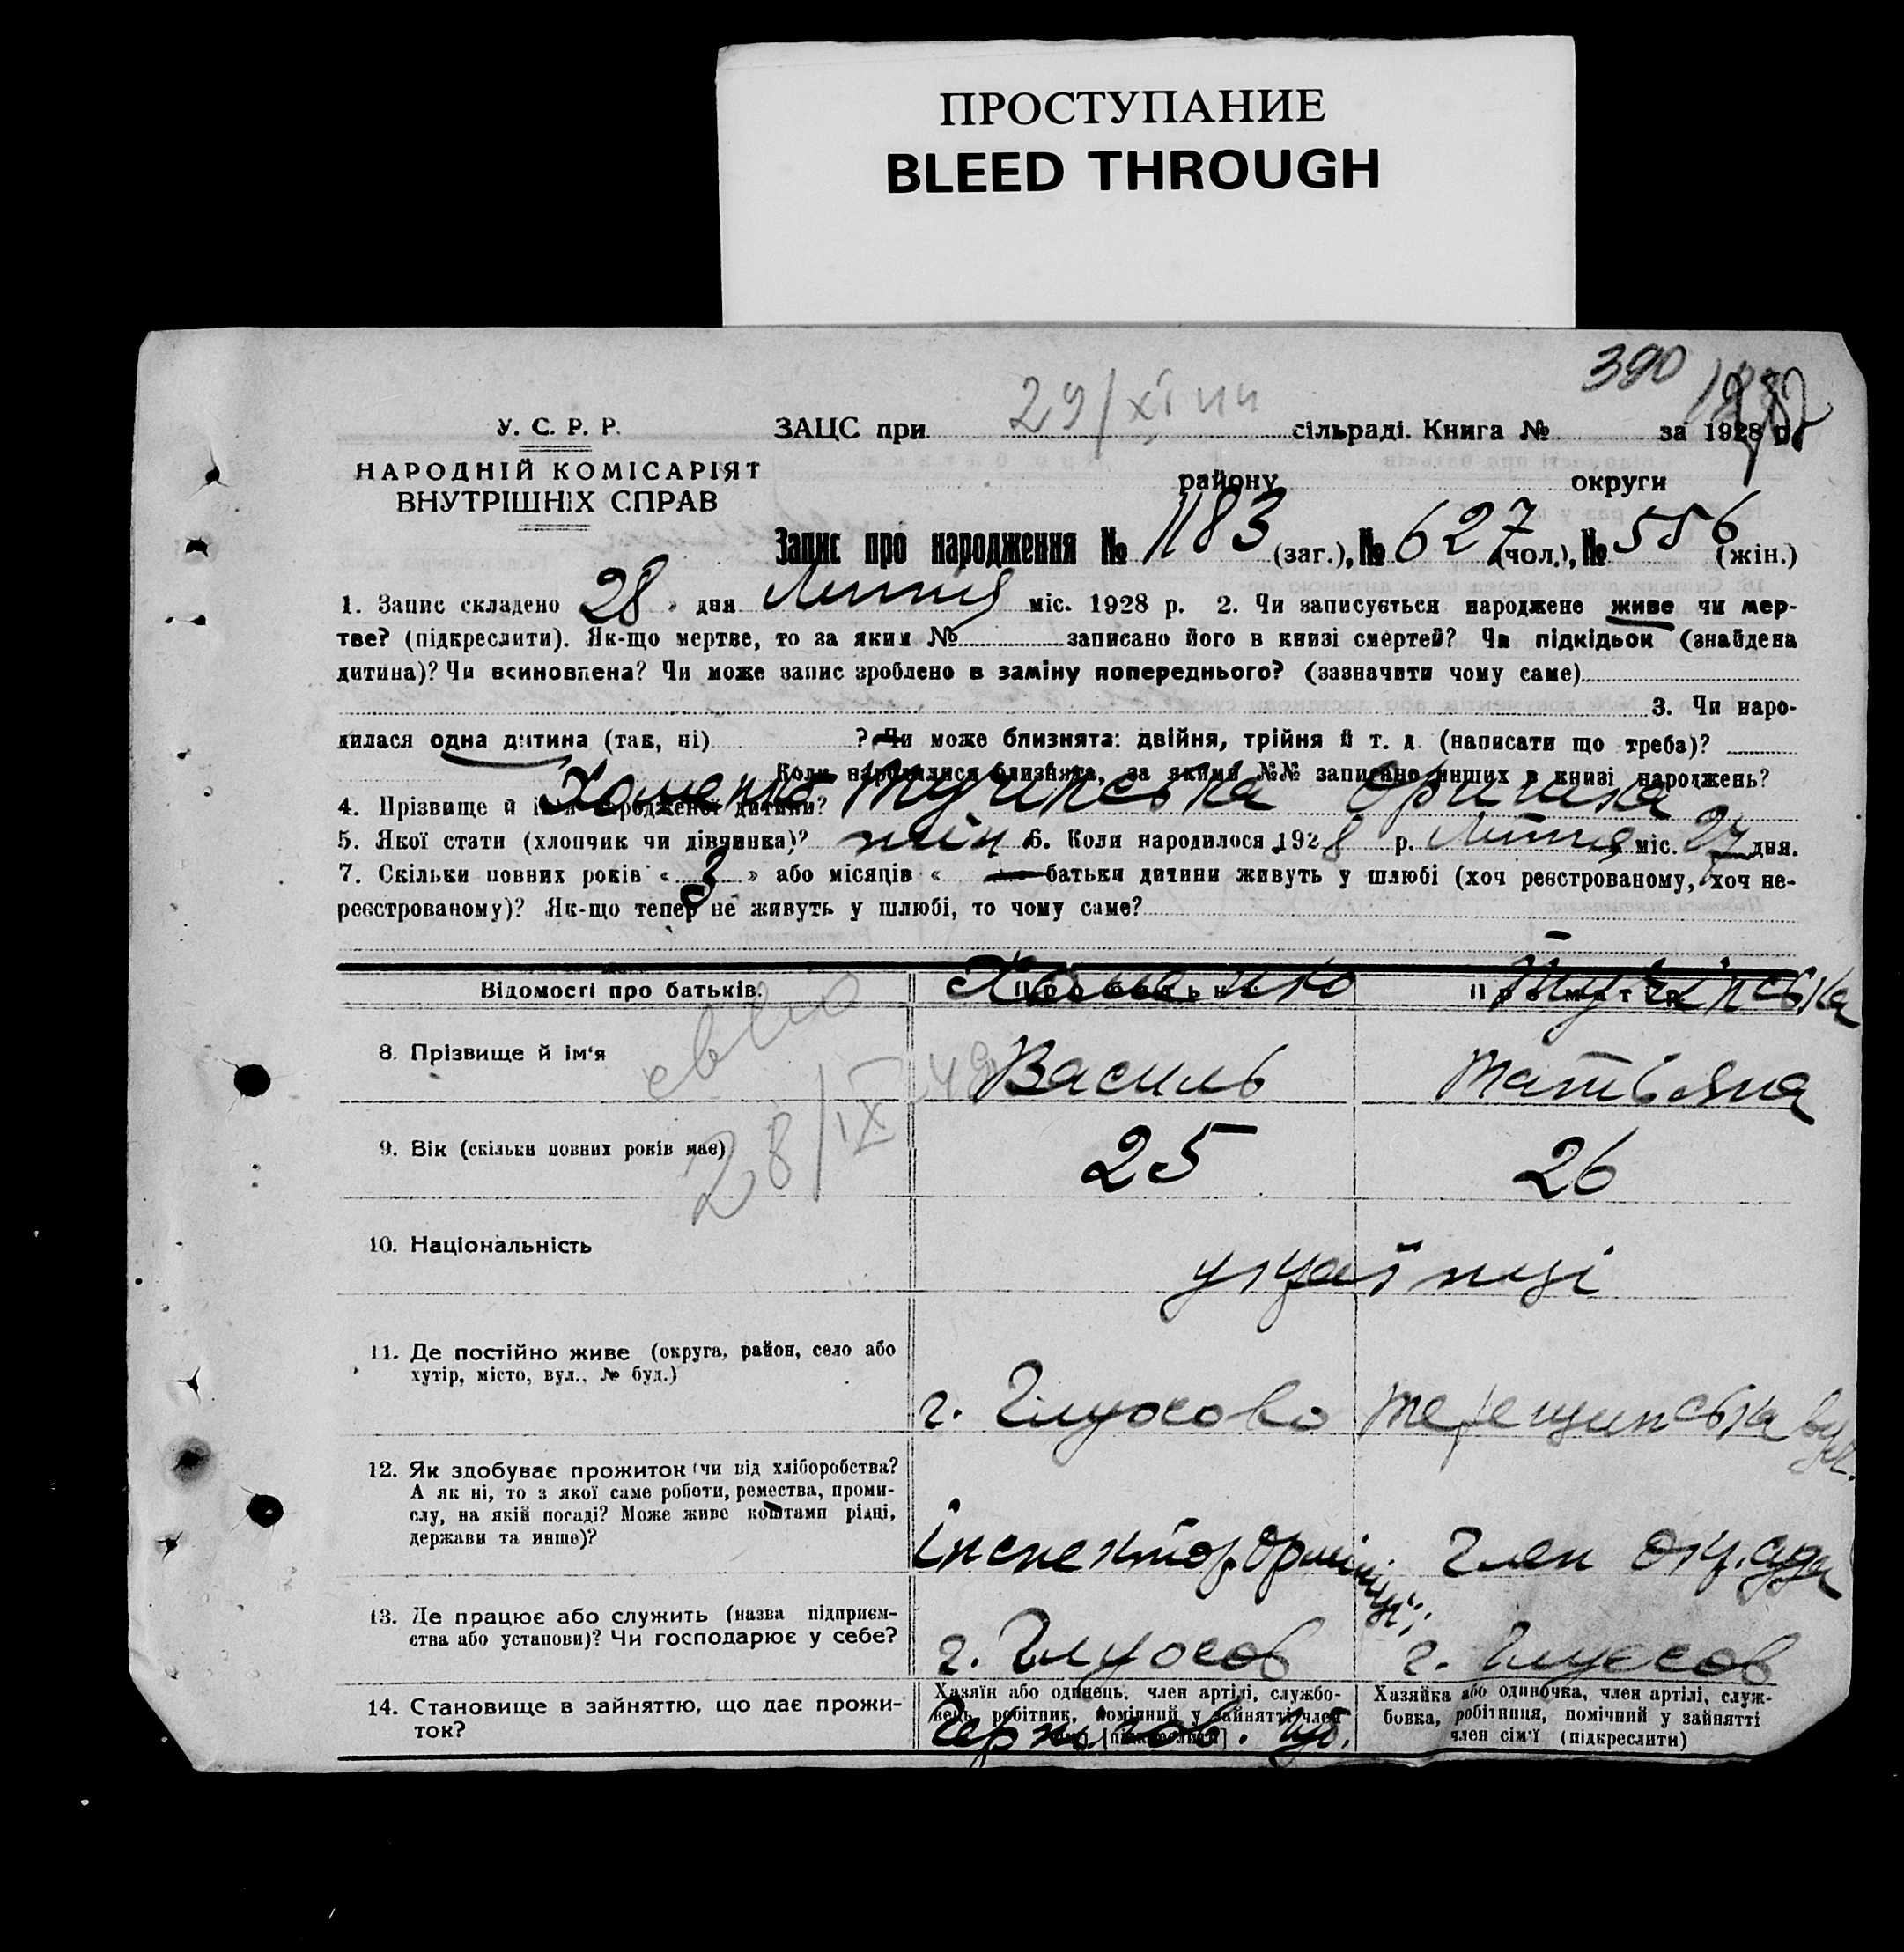 ПРОСТУПАНИЕ
BLEED THROUGH
390
У. С. Р. Р.
НАРОДНІЙ КОМІСАРІЯТ
ВНУТРІШНІХ СПРАВ
ЗАЦС при 29/XI сільраді. Книга № за 1928 р.
району округи
Запис про народження № 1183 (заг.), № 627 (чол.), № 556 (жін.)
1. Запис складено 28 » дня Липня міс. 1928 р. 2. Чи записується народжене живе чи мер-
тве? (підкреслити). Як-що мертве, то за яким № записано його в книзі смертей? Чи підкідьок (знайдена
дитина)? Чи всиновлена? Чи може запис зроблено в заміну попереднього? (зазначити чому саме)
3. Чи наро-
дилася одна дитина (так, ні) ? Чи може близнята: двійня, трійня й т. д. (написати що треба)?
Коли народилися близнята, за якими №№ записано инших в книзі народжень?
4. Прізвище й ім'я народженої дитини? Хоменко Тучинська
5. Якої стати (хлопчик чи дівчинка)? жін 6. Коли народилося 1928 р. Липня міс. дня.
7. Скільки повних років « 3 » або місяців « — батьки дитини живуть у шлюбі (хоч реєстрованому, хоч не-
реєстрованому)? Як-що тепер не живуть у шлюбі, то чому саме?
Відомості про батьків. Про батька Про матір
Хоменко
8. Прізвище й ім'я Василь Татьяна
28/IX
9. Вік (скільки повних років має) 25 26
10. Національність українці
11. Де постійно живе (округа, район, село або
хутір, місто, вул., № буд.)
г. Глухово Терещинська вул.
12. Як здобуває прожиток (чи від хліборобства?
А як ні, то з якої саме роботи, ремества, проми-
слу, на якій посаді? Може живе коштами рідні,
держави та инше)?
інспектор Член
13. Де працює або служить (назва підприєм-
ства або установи)? Чи господарює у себе?
г. Глухов г. Глухов
14. Становище в зайняттю, що дає прожи-
ток?
Хазяїн або одинець, член артілі, службо-
вець, робітник, помічний у зайнятті член
[підкреслити]
Хазяйка або одиночка, член артілі, служ-
бовка, робітниця, помічний у зайнятті
член сім'ї (підкреслити)